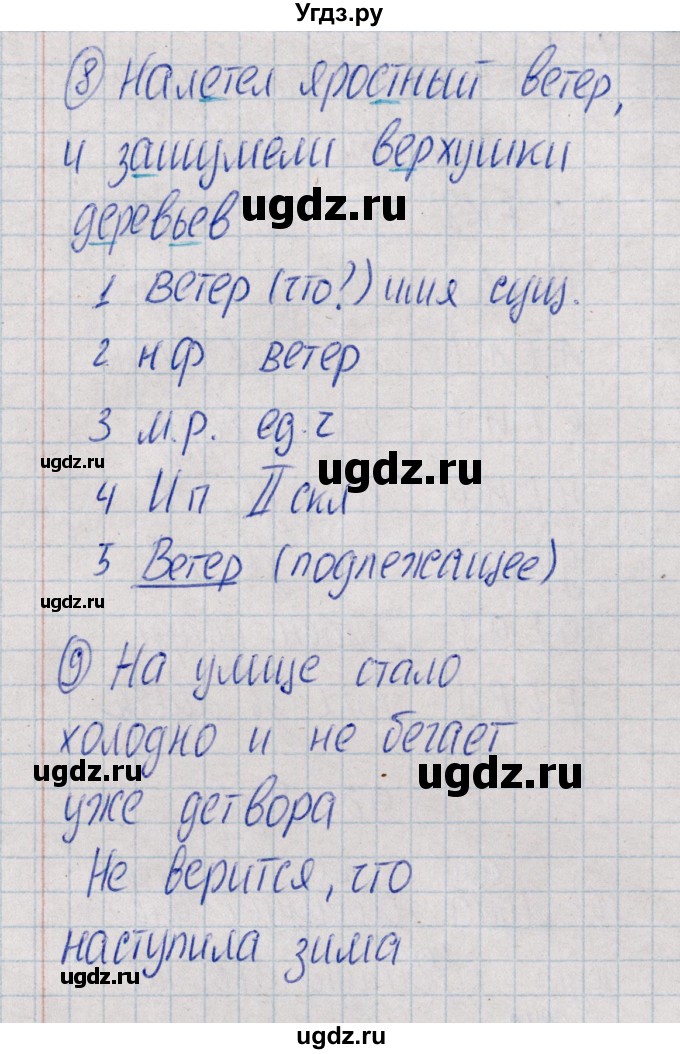 Угдз.ру
8 Налетел яростный ветер,
и зашумели верхушки
деревьев
ugdz.ru
1 Ветер (что?) имя сущ.
2 н ф ветер
3 м.р. ед. ч
ugdz.ru
ugdz.ru
4 И п II скл
5 Ветер (подлежащее)
ugdz.ru
9 На улице стало
холодно и не бегает
ugdz.ru
ugdz.ru
уже детвора
Не верится, что
наступила зима
ugdz.ru